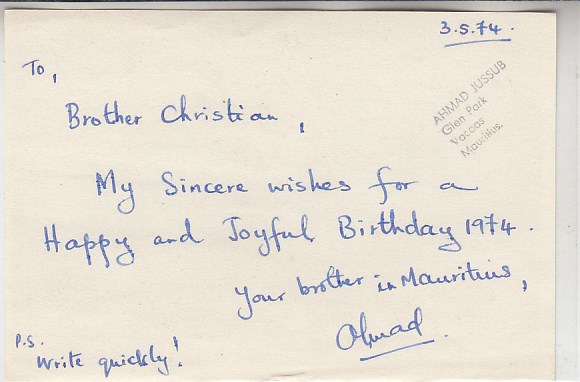 3.5.74.
To,
AHMAD JUSSUB
Glen Park
Vacoas
Mauritius.
Brother Christian,
My Sincere wishes for a
Happy and Joyful Birthday 1974.
Your brother in Mauritius,
Ahmad.
P.S.
Write quickly!